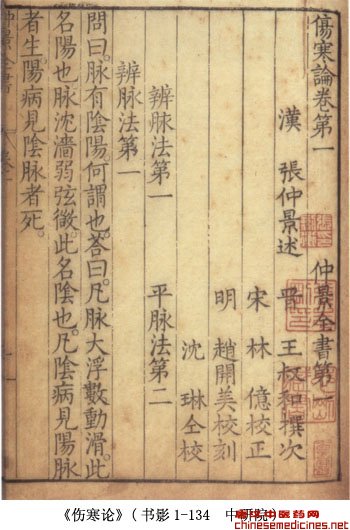 傷寒論卷第一 仲景全書第一
漢 張仲景述 晋 王叔和撰次
宋 林 億校正
明 趙開美校刻
沈 琳仝校
辨脉法第一 平脉法第二
辨脉法第一
問曰。脉有陰陽。何謂也。荅曰。凡脉大浮數動滑。此
名陽也。脉沈濇弱弦微。此名陰也。凡陰病見陽脉
者生。陽病見陰脉者死。
仲景全書
《伤寒论》(书影1-134 中研院)
中国中医药网
chinesemedicines.net